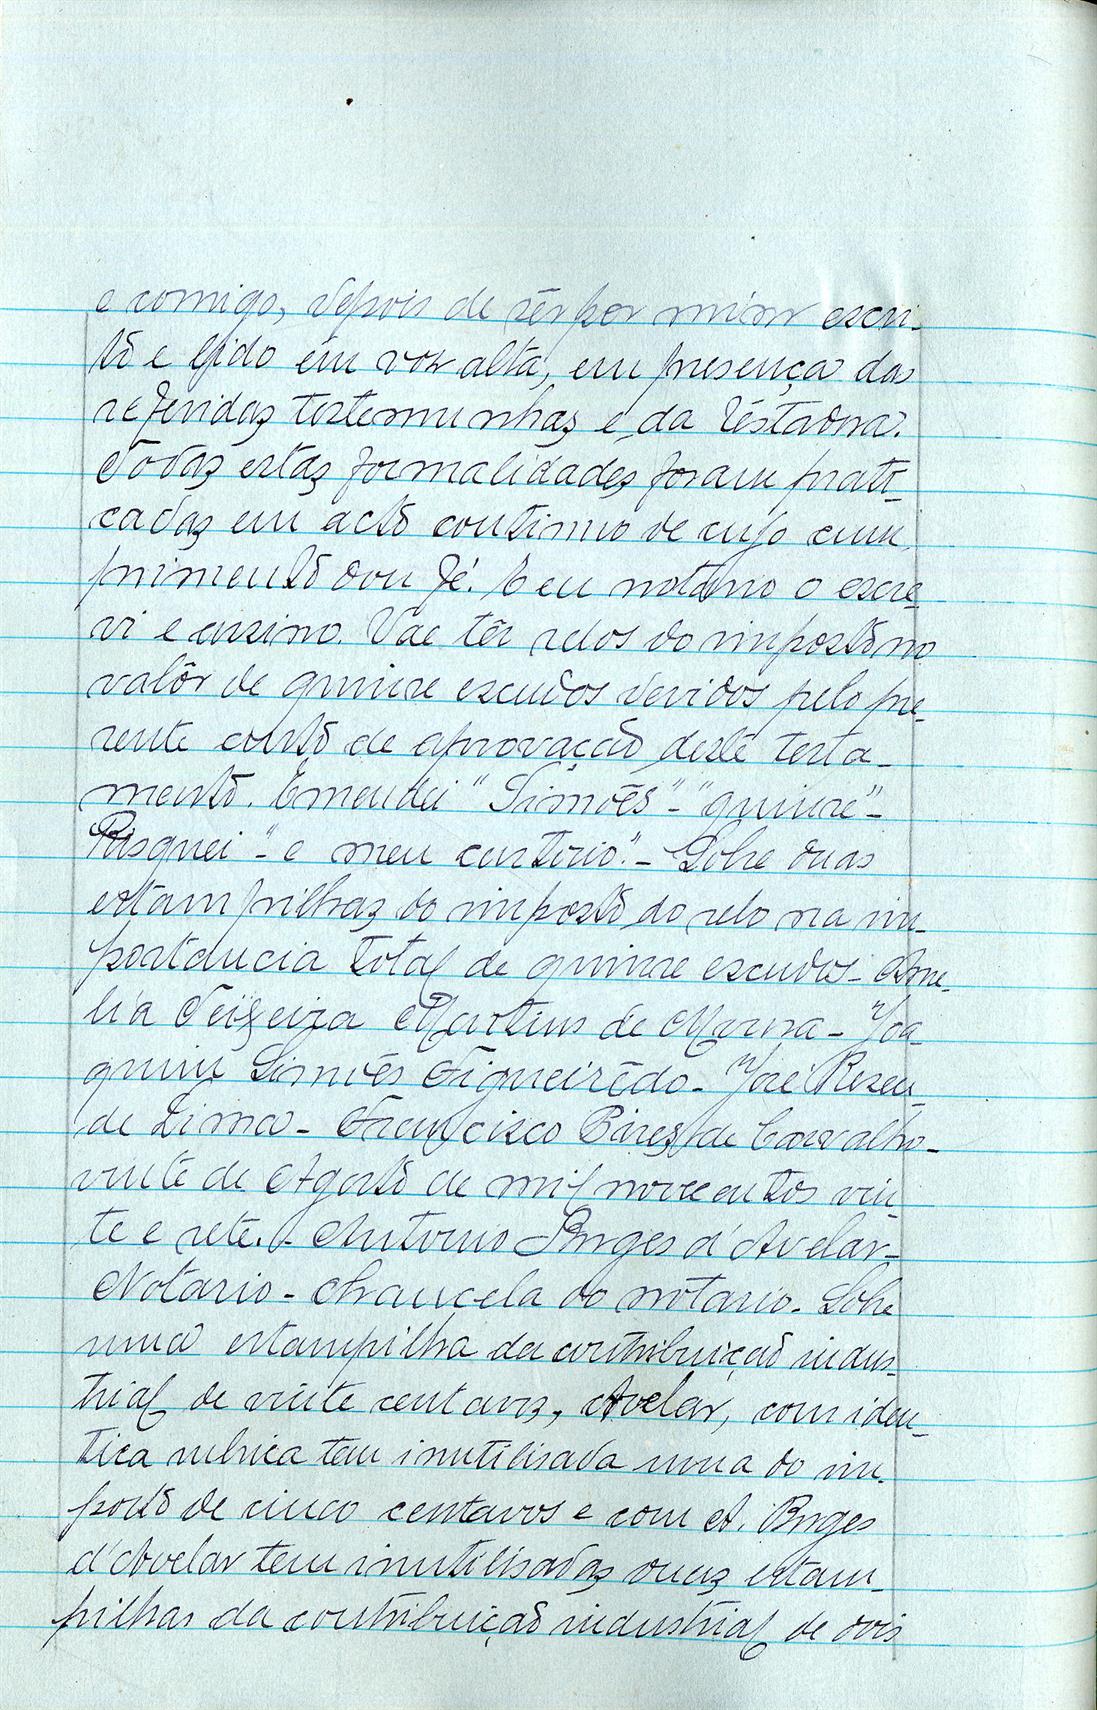 e comigo, depois de sêr por mim escri-
to e lido em voz alta, em presença das
referidas testemunhas e da testadora.
Todas estas formalidades foram prati-
cadas em acto continuo de cujo cum-
primento dou fé. E eu notario o escre-
vi e assino. Vae têr selos do imposto no
valôr de quinze escudos devidos pelo pre-
sente auto de aprovação deste testa-
mento. Emendei "Simões" - "quinze" -
Risquei "- e meu -
Sobre duas
estampilhas do imposto do selo na im-
portancia total de quinze escudos - Ame-
lia Teixeira Martins de - Joa-
quim Simões Figueirêdo - José Rezen-
de Lima - Francisco Pires de Carvalho -
vinte de Agosto de mil novecentos vin-
te e sete. - Antonio Borges d'Avelar -
Notario - Chancela do notario - Sobre
uma estampilha da contribuição indus-
trial de vinte centavos, Avelar, com iden-
tica rubrica tem inutilisada uma do im-
posto de cinco centavos e com A. Borges
d'Avelar tem inutilisadas duas estam-
pilhas da contribuição industrial de dois